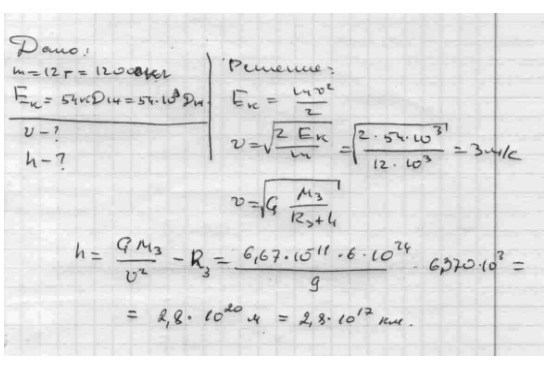 Дано:
m = 12 т = 12000 кг
Eк = 54 кДж = 54·10³ Дж
v - ?
h - ?
Решение:
Eк = mv²/2
v = √(2Eк/m) = √(2·54·10³/12·10³) = 3 м/с
v = √(G Mз/(Rз+h))
h = G Mз/v² - Rз = 6,67·10¹¹·6·10²⁴/9 - 6,370·10³ =
= 2,8·10²⁰ м = 2,8·10¹⁷ км.